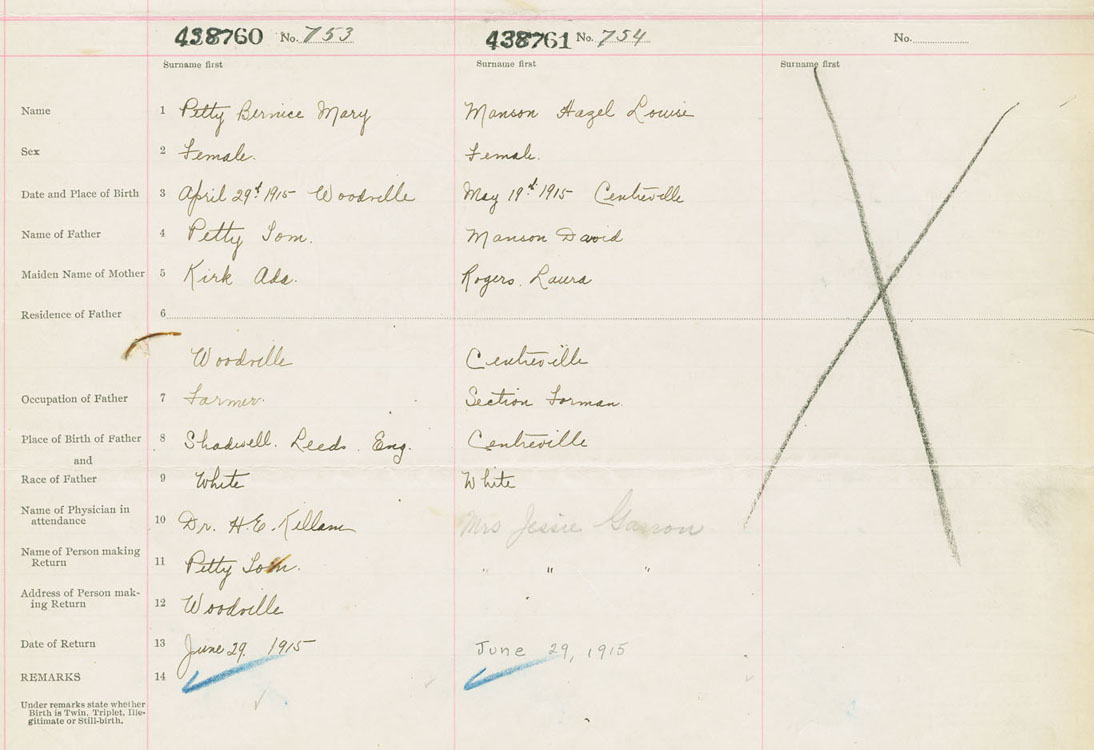 438760 No. 753 438761 No. 754 No.
Surname first Surname first Surname first
Name 1 Petty Bernice Mary Manson Hazel Louise
Sex 2 Female. Female.
Date and Place of Birth 3 April 29th 1915 Woodville May 19th 1915 Centreville
Name of Father 4 Petty Tom. Manson David
Maiden Name of Mother 5 Kirk Ada. Rogers. Laura
Residence of Father 6
Woodville Centreville
Occupation of Father 7 Farmer. Section Forman.
Place of Birth of Father 8 Shadwell. Leeds. Eng. Centreville
and
Race of Father 9 White White
Name of Physician in
attendance 10 Dr. H.E. Killam Mrs Jessie
Name of Person making
Return 11 Petty Tom. " " "
Address of Person mak-
ing Return 12 Woodville
Date of Return 13 June 29. 1915 June 29, 1915
REMARKS 14
Under remarks state whether
Birth is Twin, Triplet, Ille-
gitimate or Still-birth.